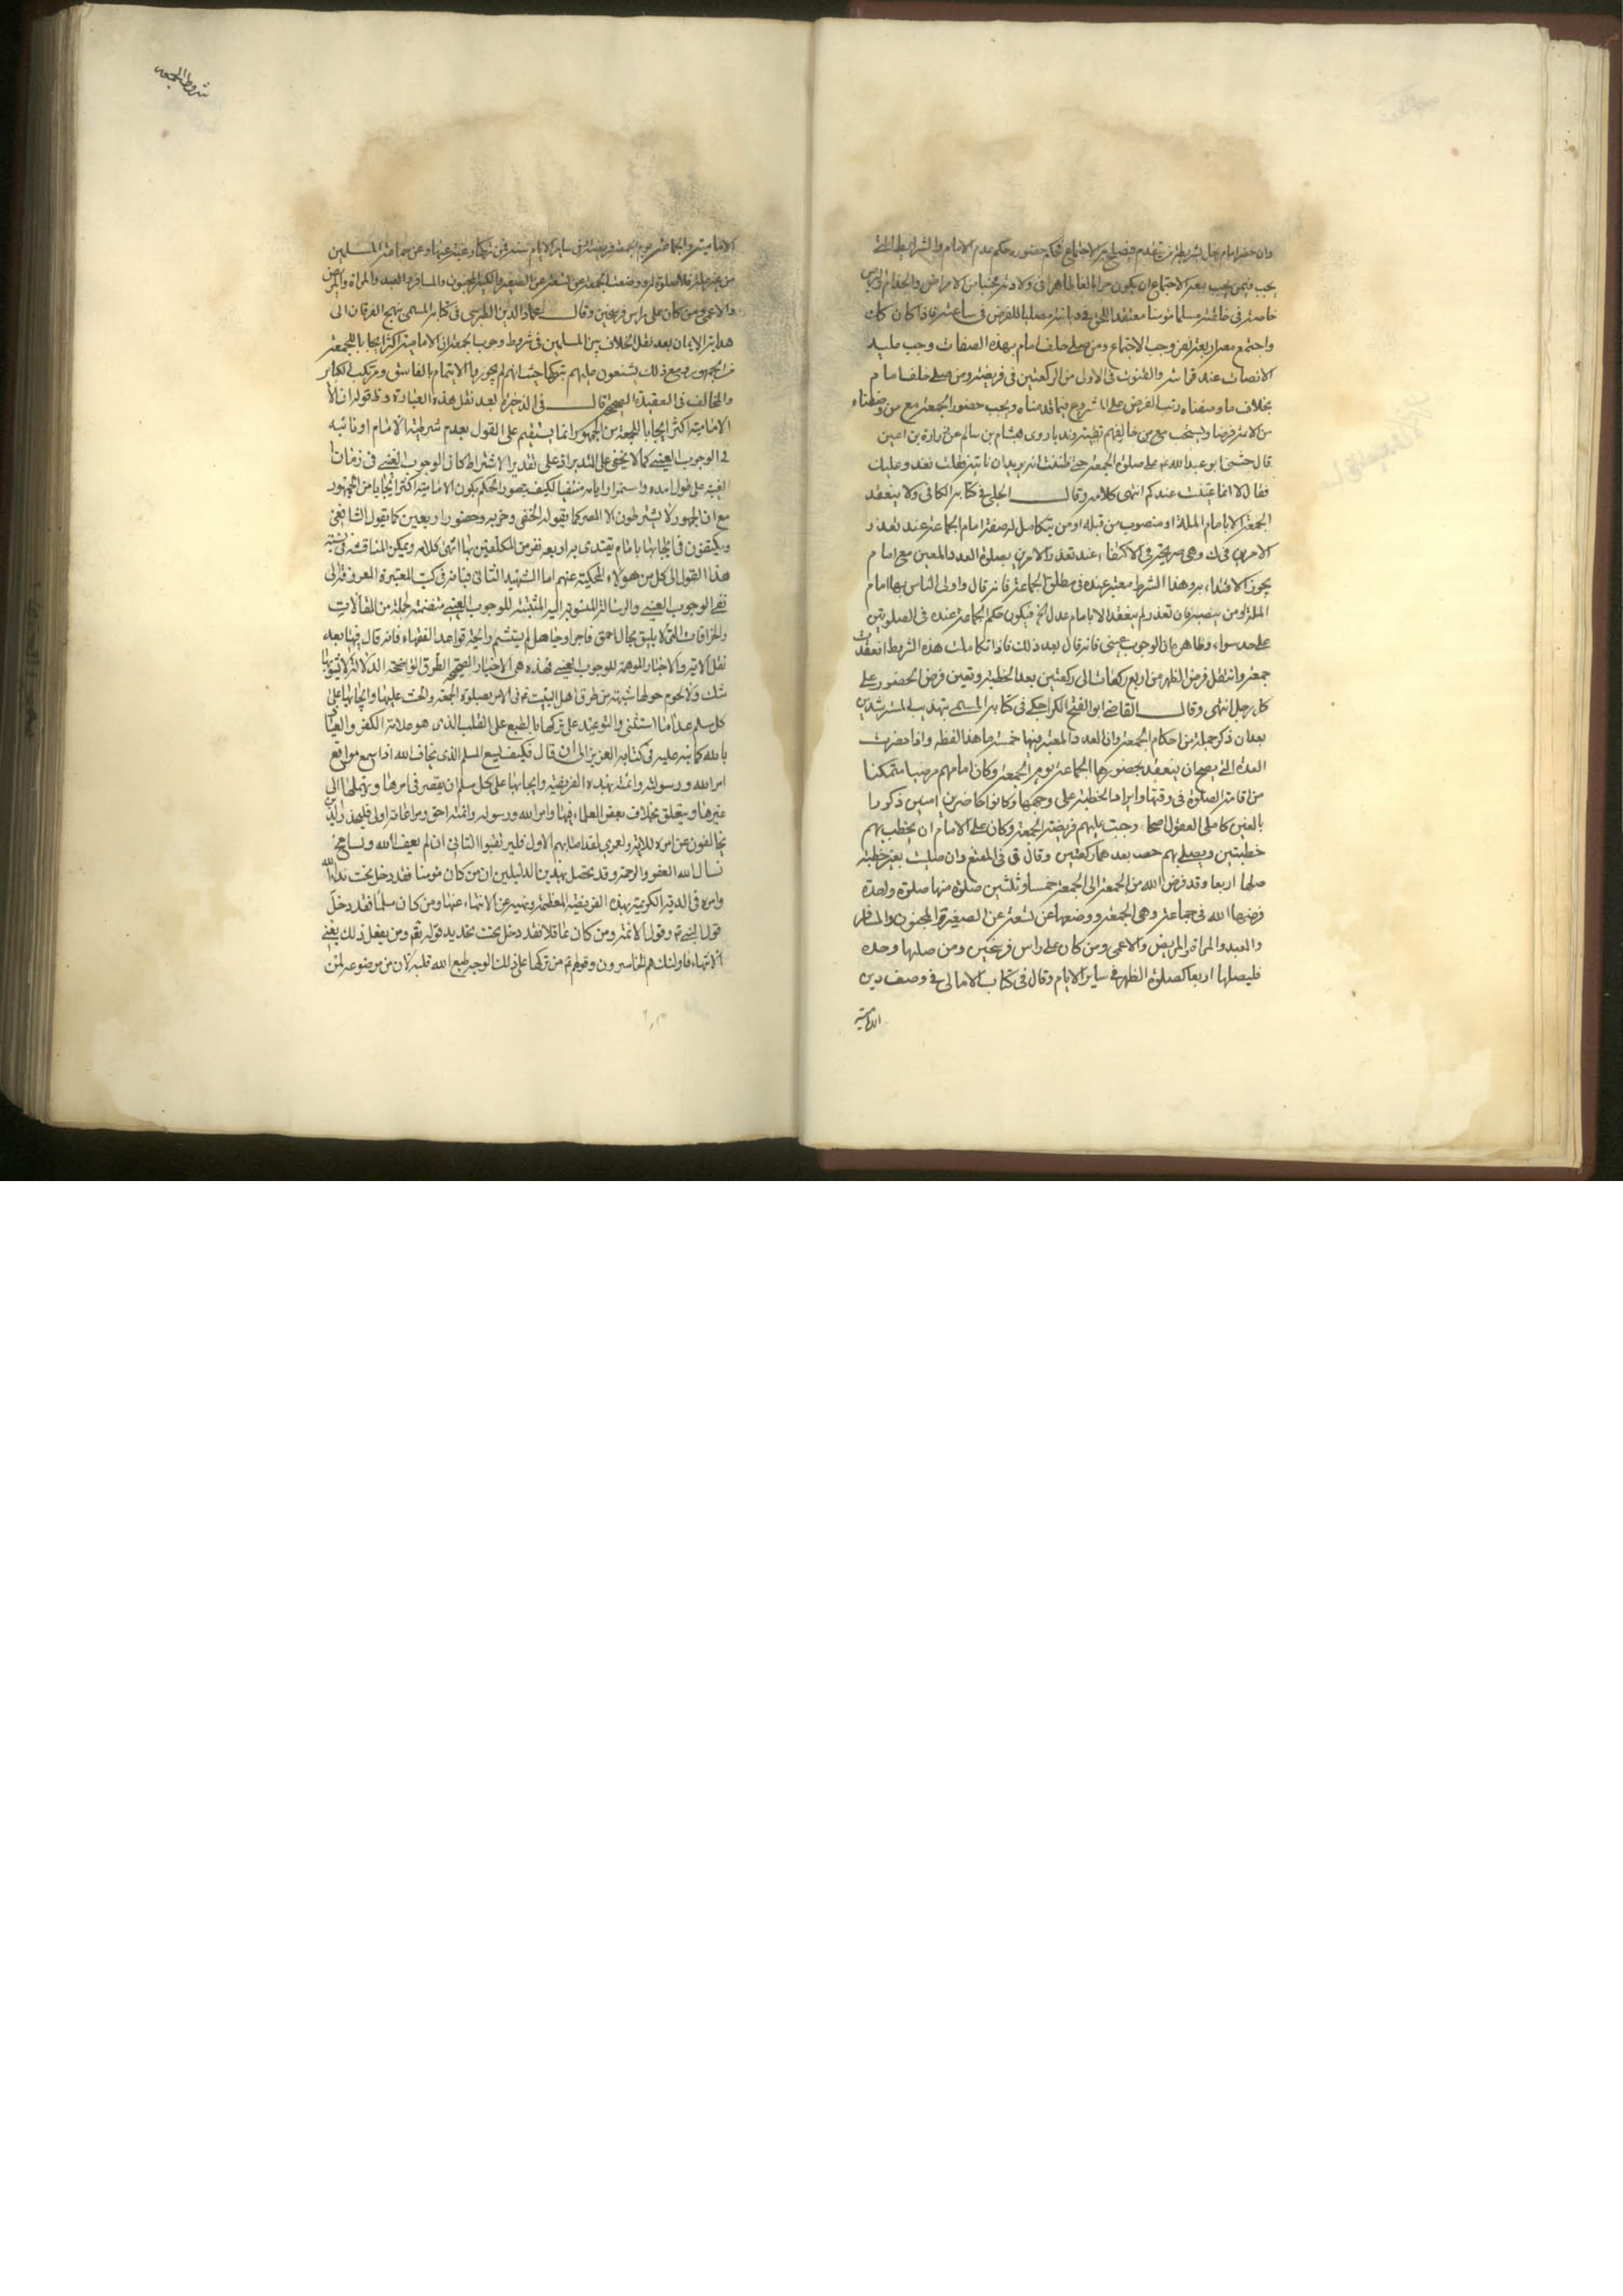 وان حضر امام يخل بشريطة من يتقدم فيصلح به الاجتماع فحكم حضوره حكم عدم الامام والشرائط التي
يجب فيمن يجب معه الاجتماع ان يكون حرا بالغا طاهرا في ولادته مجنبا من الامراض والجذام والبرص
خاصة في خلقته مسلما مؤمنا معتقدا للحق في ديانته مصليا للفرض في ساعته فاذا كان كك
واجتمع معه اربعة نفر وجب الاجتماع ومن صلى خلف امام بهذه الصفات وجب عليه
الانصات عند قرائته والقنوت في الاولى من الركعتين في فريضته ومن صلى خلف امام
بخلاف ما وصفناه رتب الفرض على المشروع فيما قدمناه ويجب حضور الجمعة مع من وصفناه
من الائمة فرضا ويستحب مع من خالفهم تقية وندبا روى هشام بن سالم عن زرارة بن اعين
قال حثنا ابو عبد الله ع على صلوة الجمعة حتى ظننت انه يريد ان ناتيه فقلت نغدو عليك
فقال لا انما عنيت عندكم انتهى كلامه وقال الحلبي في كتابه الكافي ولا ينعقد
الجمعة الا بامام الملة او منصوب من قبله او من يتكامل له صفة امام الجماعة عند تعذر
الامرين في ك وهي صريحة في الاكتفاء عند تعذر الامرين بصلوة العدد المعين مع امام
يجوز الاقتداء به وهذا الشرط معتبر عنده في مطلق الجماعة فانه قال واولى الناس بها امام
الملة او من ينصبه فان تعذر لم ينعقد الا بامام عدل الخ فيكون حكم الجماعة عنده في الصلوتين
على حد سواء وظاهره ان الوجوب عيني فانه قال بعد ذلك فاذا تكاملت هذه الشريط انعقدت
جمعة وانتقل فرض الظهر من اربع ركعات الى ركعتين بعد الخطبة وتعين فرض الحضور على
كل رجل انتهى وقال القاضي ابو الفتح الكراجكي في كتابه المسمى بتهذيب المسترشدين
بعد ان ذكر جملة من احكام الجمعة وان العدد المعتبر فيها خمسة ما هذا لفظه واذا حضرت
العدة التي يصح ان ينعقد بحضورها الجماعة يوم الجمعة وكان امامهم مرضيا متمكنا
من اقامة الصلوة في وقتها وايراد الخطبة على وجهها وكانوا حاضرين امنين ذكورا
بالغين كاملي العقول اصحاء وجبت عليهم فريضة الجمعة وكان على الامام ان يخطب بهم
خطبتين ويصلي بهم بعدهما ركعتين وقال ق في المقنع وان صليت بغير خطبة
صليتها اربعا وقد فرض الله من الجمعة الى الجمعة خمسا وثلثين صلوة منها صلوة واحدة
فرضها الله في جماعة وهي الجمعة ووضعها عن تسعة عن الصغير والمجنون والمسافر
والعبد والمراة والمريض والاعمى ومن كان على راس فرسخين ومن صليها وحده
فليصلها اربعا كصلوة الظهر في ساير الايام وقال في كتاب الامالي في وصف دين
الامامية
شروط الجمعة
الامامية والجماعة يوم الجمعة فريضة وفي ساير الايام سنة فمن تركها رغبة عنها وعن جماعة المسلمين
من غير علة فلا صلوة له ووضعت الجمعة عن تسعة عن الصغير والكبير والمجنون والمسافر والعبد والمراة والمريض
والاعمى ومن كان على راس فرسخين وقال عماد الدين الطبرسي في كتابه المسمى بنهج العرفان الى
هداية الايمان بعد نقل الخلاف بين المسلمين في شروط وجوب الجمعة ان الامامية اكثر ايجابا للجمعة
من الجمهور ومع ذلك يشنعون عليهم بتركها حيث انهم لم يجوزوا الايتمام بالفاسق ومرتكب الكبائر
والمخالف في العقيدة الصحيحة قال في الذخيرة بعد نقل هذه العبارة وظ قوله ان
الامامية اكثر ايجابا للجمعة من الجمهور انما يستقيم على القول بعدم شرطية الامام او نائبه
في الوجوب العيني كما لا يخفى على المتدبر اذ على تقدير الاشتراط كان الوجوب العيني في زمان
الغيبة على طول امده واستمرار ايامه منتفيا فكيف يتصور الحكم بكون الامامية اكثر ايجابا من الجمهور
مع ان الجمهور لا يشترطون الا المصر كما يقوله الحنفي وحزبه وحضور اربعين كما يقول الشافعي
ويكتفون في ايجابها بامام يقتدى به اربعة نفر من المكلفين بها انتهى كلامه ويمكن المناقشة في نسبة
هذا القول الى كل من هؤلاء المحكية عنهم اما الشهيد الثاني فانه في كتبه المعتبرة المعروفة الى
نفي الوجوب العيني والرسالة المنسوبة اليه المثبتة للوجوب العيني متضمنة لجملة من المقالات
والخرافات التي لا يليق بحال احمق فاجر او جاهل لم يتشمم رائحة قواعد الفقهاء فانه قال فيها بعد
نقل الاية والاخبار الموهمة للوجوب العيني فهذه هي الاخبار الصحيحة الطرق الواضحة الدلالة لا يشوبها
شك ولا يحوم حولها شبهة من طرق اهل البيت ع في الامر بصلوة الجمعة والحث عليها وايجابها على
كل مسلم عدا ما استثني والتوعيد على تركها بالطبع على القلب الذي هو علامة الكفر والعياذ
بالله كما نبه عليه في كتابه العزيز الى ان قال فكيف يسع المسلم الذي يخاف الله اذا سمع مواقع
امر الله ورسوله وائمته بهذه الفريضة وايجابها على كل مسلم ان يقصر في امرها ويهملها الى
غيرها ويتعلق بخلاف بعض العلماء فيها وامر الله ورسوله وائمته احق ومراعاته اولى فليحذر الذين
يخالفون عن امره الاية ولعمري لقد اصابهم الاول فليرتقبوا الثاني ان لم يعف الله ويسامح
نسال الله العفو والرحمة وقد تحصل بهذين الدليلين ان من كان مؤمنا فقد دخل تحت نداء الله
وامره في الاية الكريمة بهذه الفريضة العظيمة ونهيه عن الالتهاء عنها ومن كان مسلما فقد دخل
قول النبي ص وقول الائمة ومن كان عاقلا فقد دخل تحت تهديد قوله تع ومن يفعل ذلك يعني
الالتهاء فاولئك هم الخاسرون وقولهم ع من تركها على ذلك الوجه طبع الله قلبه لان من موضوعة لمن